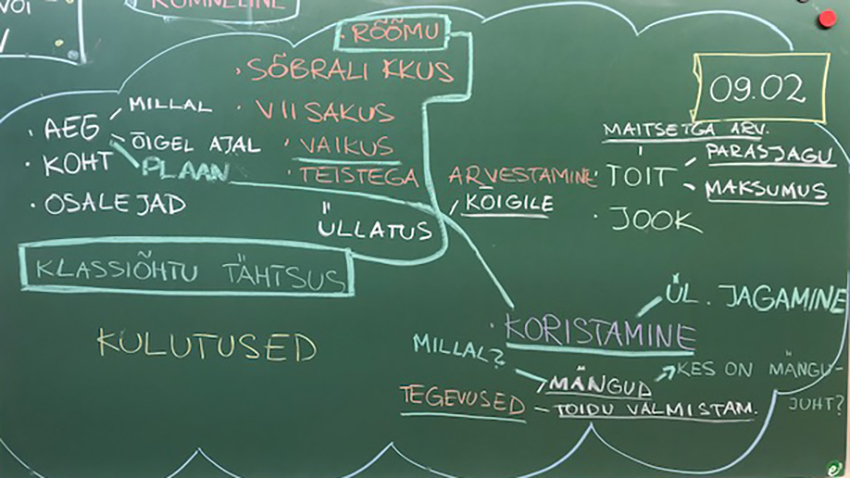 VOI
KOMNELINE
RÕÕMU
SÕBRALIKKUS
VIISAKUS
VAIKUS
TEISTEGA ARVESTAMINE
09.02
AEG
MILLAL
ÕIGEL AJAL
PLAAN
KOHT
OSALEJAD
ÜLLATUS
KÕIGILE
MAITSETGA ARV.
TOIT
PARASJAGU
MAKSUMUS
JOOK
KLASSIÕHTU TÄHTSUS
KULUTUSED
KORISTAMINE
ÜL. JAGAMINE
MILLAL?
TEGEVUSED
MÄNGUD
KES ON MÄNGU-
JUHT?
TOIDU VALMISTAM.